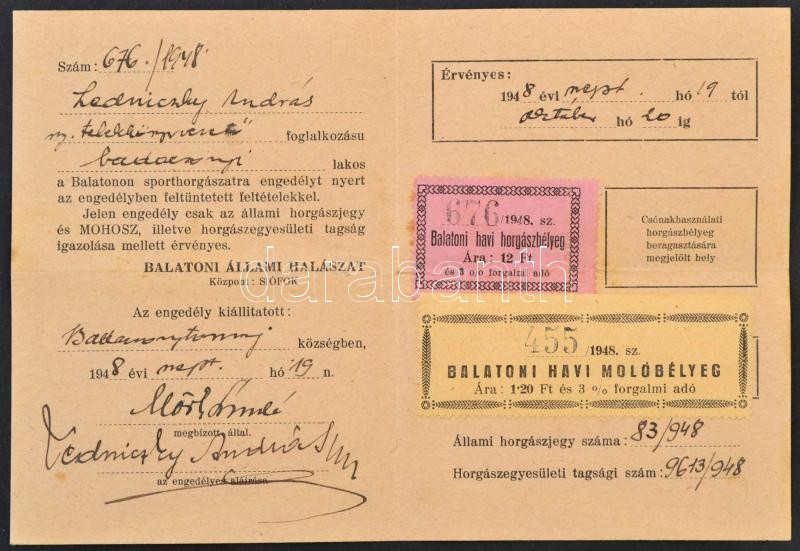 Szám: 676./1948.
Ledniczky András
ny. telekkönyvvezető foglalkozásu
badacsonyi lakos
a Balatonon sporthorgászatra engedélyt nyert
az engedélyben feltüntetett feltételekkel.
Jelen engedély csak az állami horgászjegy
és MOHOSZ, illetve horgászegyesületi tagság
igazolása mellett érvényes.
BALATONI ÁLLAMI HALÁSZAT
Központ: SIÓFOK
Az engedély kiállitatott:
Badacsonytomaj községben,
1948 évi szept. hó 19 n.
megbizott által.
Ledniczky András
az engedélyes aláirása
Érvényes:
1948 évi szept. hó 19 tól
október hó 20 ig
676/1948. sz.
Balatoni havi horgászbélyeg
Ára: 12 Ft
és 3 o/o forgaltai adó
Csónakhasználati
horgászbélyeg
beragasztására
megjelölt hely
455/1948. sz.
BALATONI HAVI MOLÓBÉLYEG
Ára: 1·20 Ft és 3 % forgalmi adó
Állami horgászjegy száma: 83/948
Horgászegyesületi tagsági szám: 9613/948
darabanth